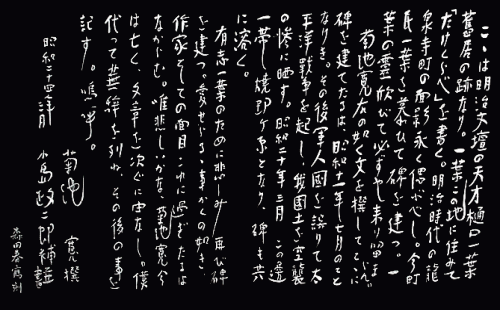 ここは明治文壇の天才樋口一葉
舊居の跡なり。一葉この地に住みて
「たけくらべ」を書く。明治時代の龍
泉寺町の面影永く偲ぶべし。今町
民一葉を慕ひて碑を建つ。一
葉の霊欣びて必ずや来り留まらん。
菊池寛右の如く文を撰してここに
碑を建てたるは、昭和十一年七月のこと
なりき。その後軍人國を誤りて太
平洋戦争を起し、我國土を空襲
の惨に晒す。昭和二十年三月この邊
一帯焼野ヶ原となり、碑も共
に溶く。
有志一葉のために悲しみ再び碑
を建つ。愛せらるる事かくの如き、
作家としての面目これに過ぎたるは
なからむ。唯悲しいかな、菊池寛今
は亡く、文章を次ぐに由なし。僕
代って蕪辞を列ね、その後の事を
記す。嗚呼。
昭和二十四年三月
菊池 寛 撰
小島政二郎補並書
森田春鶴刻